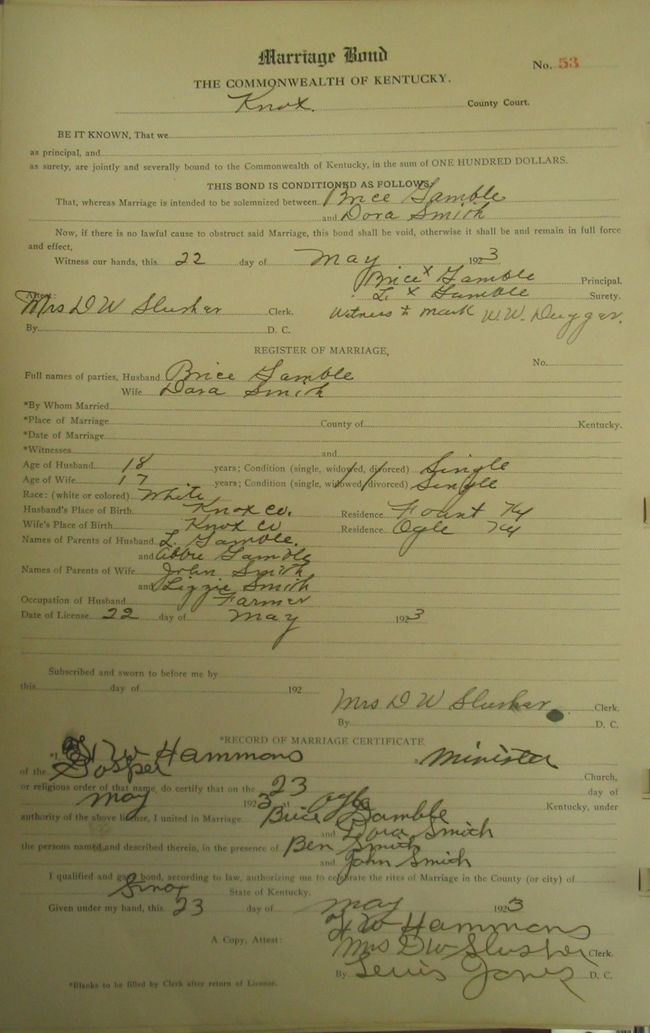 Marriage Bond
No. 53
THE COMMONWEALTH OF KENTUCKY.
Knox County Court.
BE IT KNOWN, That we
as principal, and
as surety, are jointly and severally bound to the Commonwealth of Kentucky, in the sum of ONE HUNDRED DOLLARS.
THIS BOND IS CONDITIONED AS FOLLOWS:
That, whereas Marriage is intended to be solemnized between Brice Gamble
and Dora Smith
Now, if there is no lawful cause to obstruct said Marriage, this bond shall be void, otherwise it shall be and remain in full force
and effect,
Witness our hands, this 22 day of May 1923
Brice x Gamble Principal.
Attest: L. x Gamble Surety.
Mrs D W Slusher Clerk. Witness x mark W. W. Dugger.
By D. C.
REGISTER OF MARRIAGE,
No.
Full names of parties, Husband Brice Gamble
Wife Dora Smith
*By Whom Married
*Place of Marriage County of Kentucky.
*Date of Marriage
*Witnesses and
Age of Husband 18 years; Condition (single, widowed, divorced) Single
Age of Wife 17 years; Condition (single, widowed, divorced) Single
Race: (white or colored) White
Husband's Place of Birth Knox Co. Residence Fount Ky
Wife's Place of Birth Knox Co Residence Ogle Ky
Names of Parents of Husband L. Gamble.
and Abbie Gamble
Names of Parents of Wife John Smith
and Lizzie Smith
Occupation of Husband Farmer
Date of License 22 day of May 1923
Subscribed and sworn to before me by
this day of 192
Mrs D W Slusher Clerk.
By D. C.
*RECORD OF MARRIAGE CERTIFICATE
*I, W Hammons a Minister
of the Gosper Church,
or religious order of that name, do certify that on the 23 day of
May 1923 at Ogle Kentucky, under
authority of the above license, I united in Marriage Brice Gamble
and Dora Smith
the persons named and described therein, in the presence of Ben Smith
and John Smith
I qualified and gave bond, according to law, authorizing me to celebrate the rites of Marriage in the County (or city) of
State of Kentucky.
Given under my hand, this 23 day of May 1923
W Hammons
A Copy, Attest: Mrs D W Slusher Clerk.
By Lewis Jones D. C.
*Blanks to be filled by Clerk after return of License.